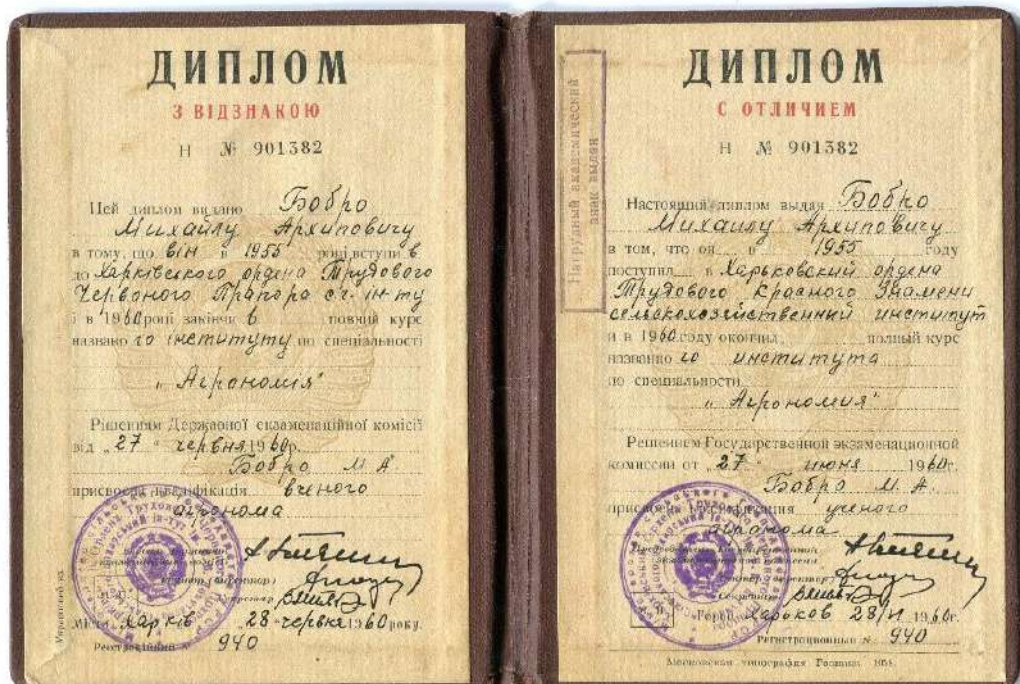 ДИПЛОМ
З ВІДЗНАКОЮ
Н № 901382
Цей диплом видано Бобро
Михайлу Архиповичу
в тому, що він в 1955 році вступив
до Харківського ордена Трудового
Червоного Прапора с.г. ін-ту
і в 1960 році закінчив повний курс
названого інституту по спеціальності
„Агрономія"
Рішенням Державної екзаменаційної комісії
від „27" червня 1960р.
Бобро М. А.
присвоєна кваліфікація вченого
агронома
Місто Харків 28 червня 1960 року.
Реєстраційний № 940
Нагрудный академический
знак выдан
ДИПЛОМ
С ОТЛИЧИЕМ
Н № 901382
Настоящий диплом выдан Бобро
Михаилу Архиповичу
в том, что он в 1955 году
поступил в Харьковский ордена
Трудового Красного Знамени
сельскохозяйственный институт
и в 1960 году окончил полный курс
названного института
по специальности
„Агрономия"
Решением Государственной экзаменационной
комиссии от „27" июня 1960г.
Бобро М. А.
присвоена квалификация ученого
агронома
Председатель Государственной
экзаменационной комиссии
Ректор (директор)
Секретарь
Город Харьков 28/VI 1960г.
Регистрационный № 940
Московская типография Гознака. 1958.